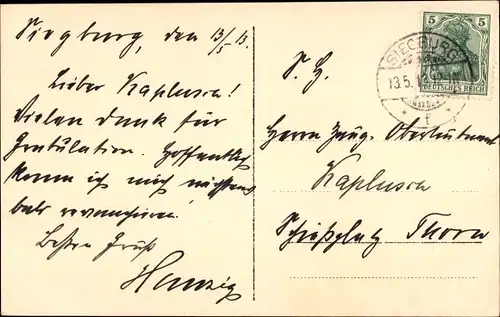 Siegburg, den 13/5 13.
Lieber Kaplusra!
Vielen Dank für
Gratulation. Hoffentlich
kann ich mich
bald revanchieren!
Besten Gruß
5 5
DEUTSCHES REICH
SIEGBURG
13.5.
S. H.
Herrn Zeug. Oberleutnant
Kaplusra
Schießplatz Thorn